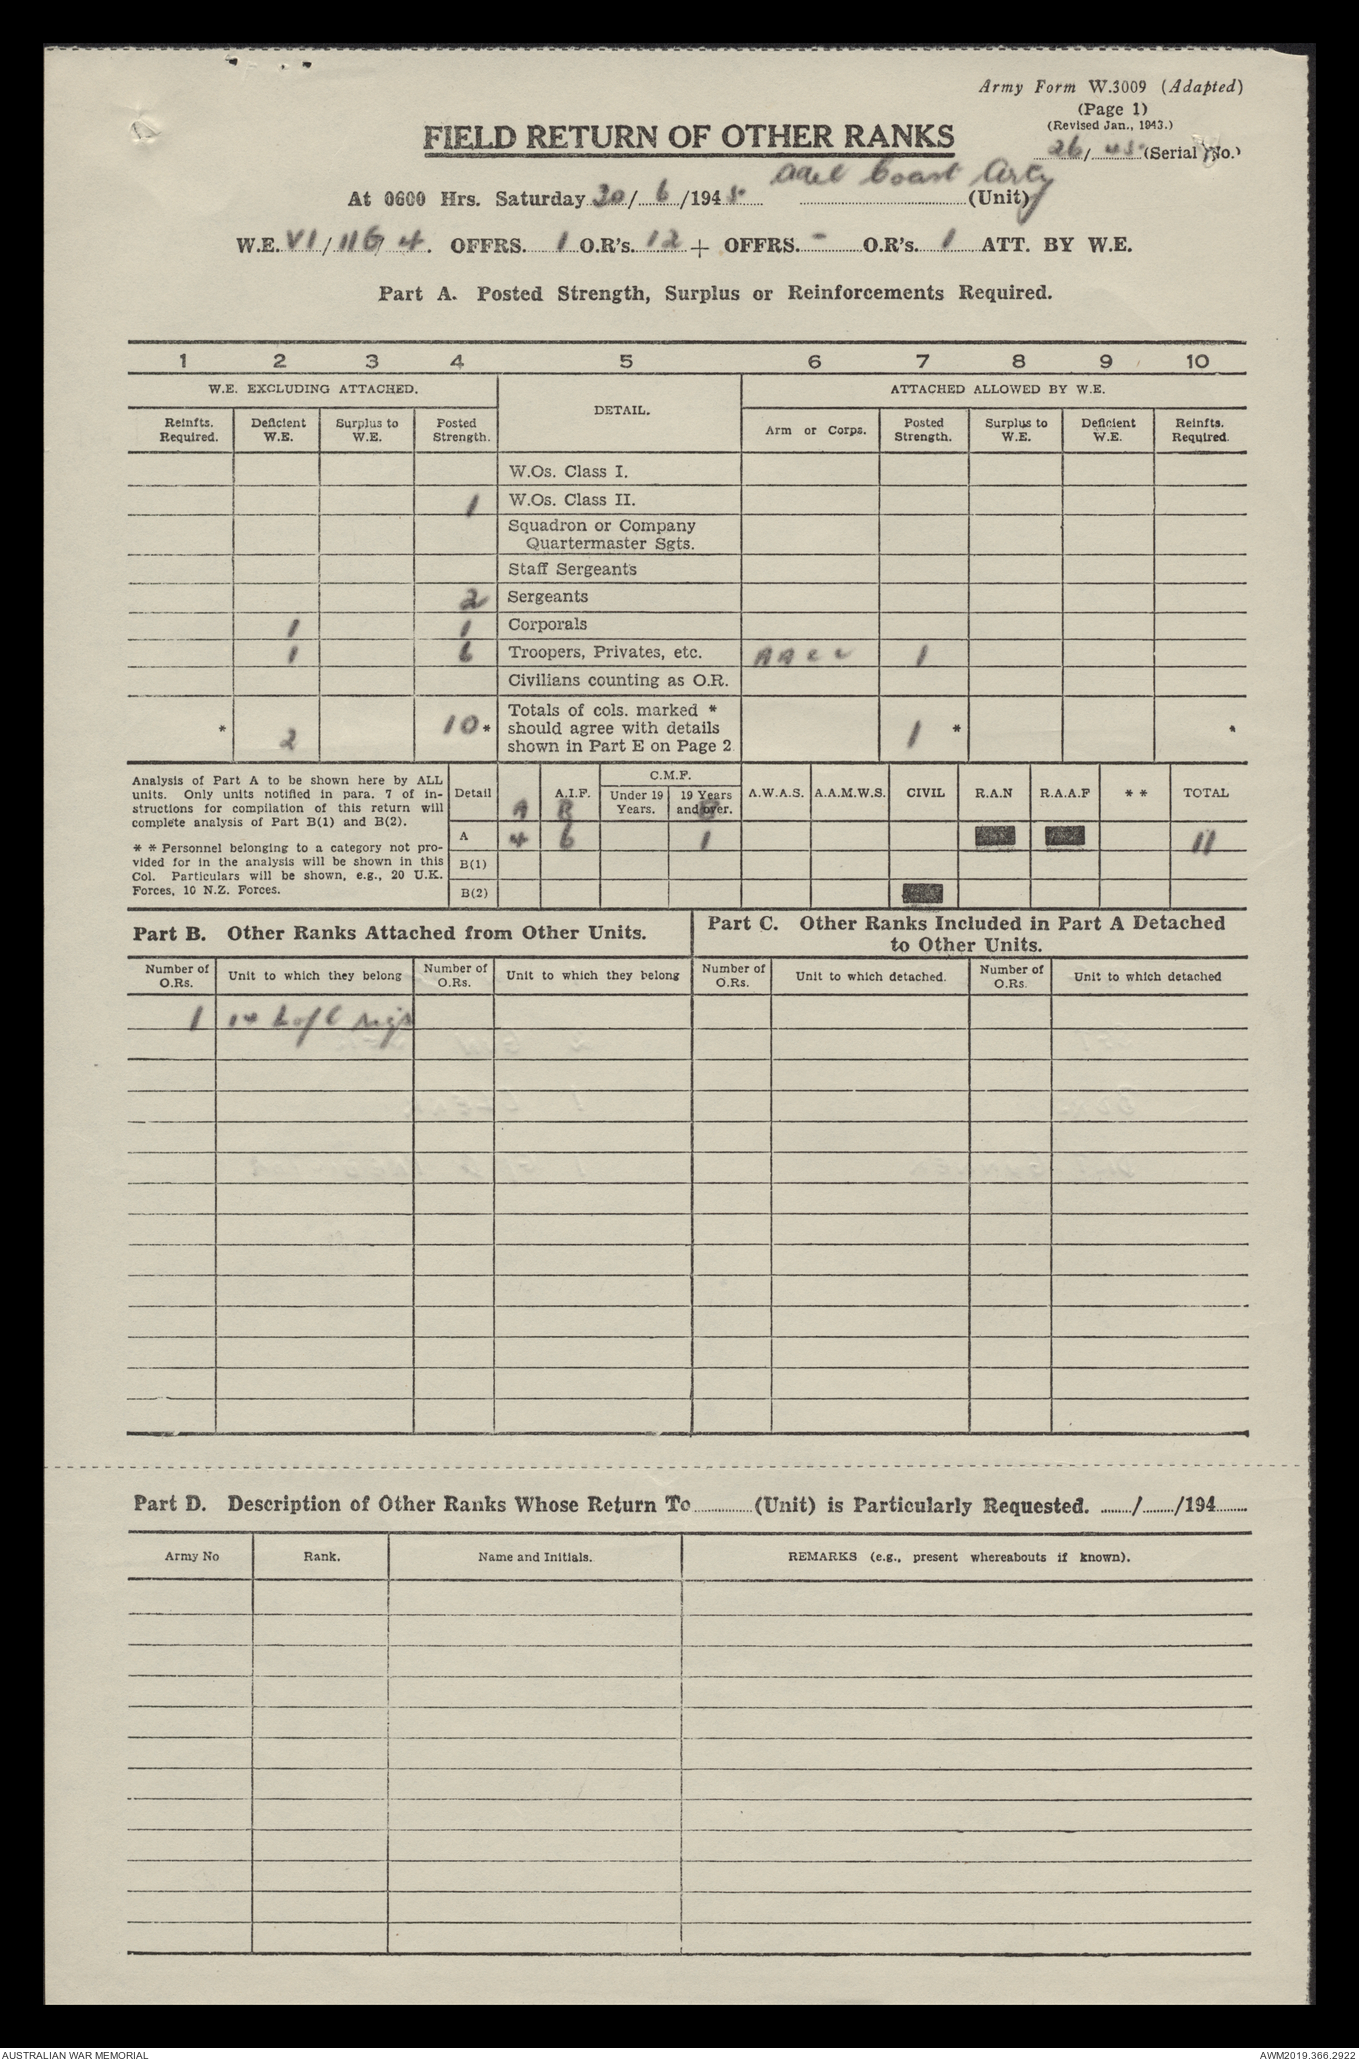 Army Form W.3009 (Adapted)
(Page 1)
(Revised Jan., 1943.)
FIELD RETURN OF OTHER RANKS
26/45 (Serial No.)
At 0600 Hrs. Saturday 30/6/1945 Adel Coast Arty (Unit)
W.E. VI/116/4. OFFRS. 1 O.R's. 12 + OFFRS. - O.R's. 1 ATT. BY W.E.
Part A. Posted Strength, Surplus or Reinforcements Required.
1 2 3 4 5 6 7 8 9 10
W.E. EXCLUDING ATTACHED. DETAIL. ATTACHED ALLOWED BY W.E.
Reinfts. Required. Deficient W.E. Surplus to W.E. Posted Strength. Arm or Corps. Posted Strength. Surplus to W.E. Deficient W.E. Reinfts. Required.
W.Os. Class I.
1 W.Os. Class II.
Squadron or Company
Quartermaster Sgts.
Staff Sergeants
2 Sergeants
1 1 Corporals
1 6 Troopers, Privates, etc. 1
Civilians counting as O.R.
Totals of cols. marked *
* 2 10 * should agree with details 1 * *
shown in Part E on Page 2
Analysis of Part A to be shown here by ALL
units. Only units notified in para. 7 of in-
structions for compilation of this return will
complete analysis of Part B(1) and B(2).
* * Personnel belonging to a category not pro-
vided for in the analysis will be shown in this
Col. Particulars will be shown, e.g., 20 U.K.
Forces, 10 N.Z. Forces.
Detail A.I.F. C.M.F. Under 19 Years. 19 Years and over. A.W.A.S. A.A.M.W.S. CIVIL R.A.N R.A.A.F * * TOTAL
A B B
A 4 6 1 11
B(1)
B(2)
Part B. Other Ranks Attached from Other Units.
Part C. Other Ranks Included in Part A Detached
to Other Units.
Number of O.Rs. Unit to which they belong Number of O.Rs. Unit to which they belong Number of O.Rs. Unit to which detached. Number of O.Rs. Unit to which detached
1 14 L of C Sigs
Part D. Description of Other Ranks Whose Return To (Unit) is Particularly Requested. / /194
Army No Rank. Name and Initials. REMARKS (e.g., present whereabouts if known).
AUSTRALIAN WAR MEMORIAL AWM2019.366.2922